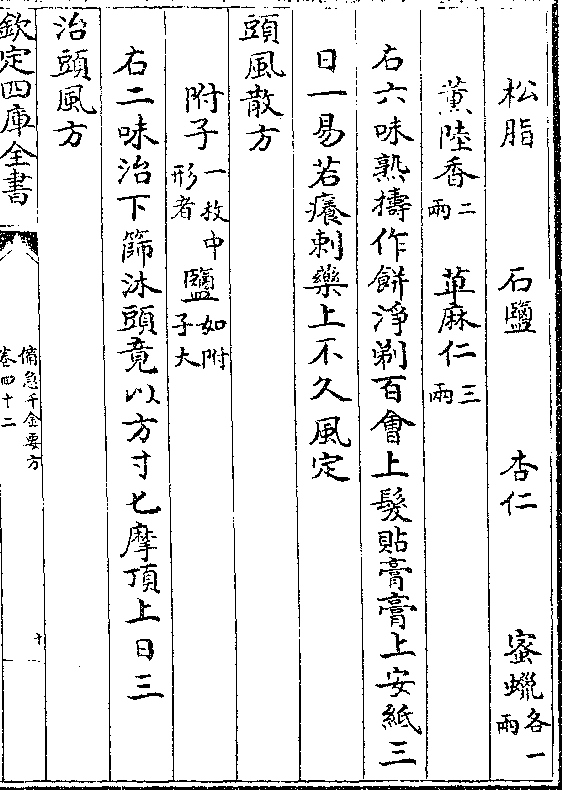 松脂　石鹽　杏仁　蜜蠟各一兩
薰陸香二兩　萆麻仁三兩
右六味熟擣作餅淨剃百會上髮貼膏膏上安紙三
日一易若癢刺藥上不久風定
頭風散方
附子一枚中形者　鹽如附子大
右二味治下篩沐頭竟以方寸匕摩頂上日三
治頭風方
欽定四庫全書
備急千金要方
卷四十二
十